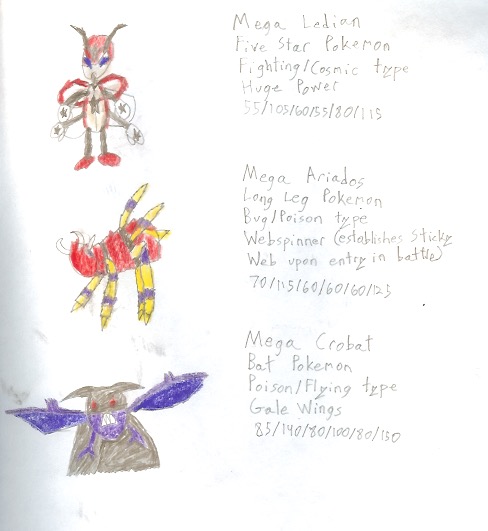 Mega Ledian
Five Star Pokemon
Fighting/Cosmic type
Huge Power
55/105/60/55/80/115
Mega Ariados
Long Leg Pokemon
Bug/Poison type
Webspinner (establishes Sticky
Web upon entry in battle)
70/115/60/60/60/125
Mega Crobat
Bat Pokemon
Poison/Flying type
Gale Wings
85/140/80/100/80/150